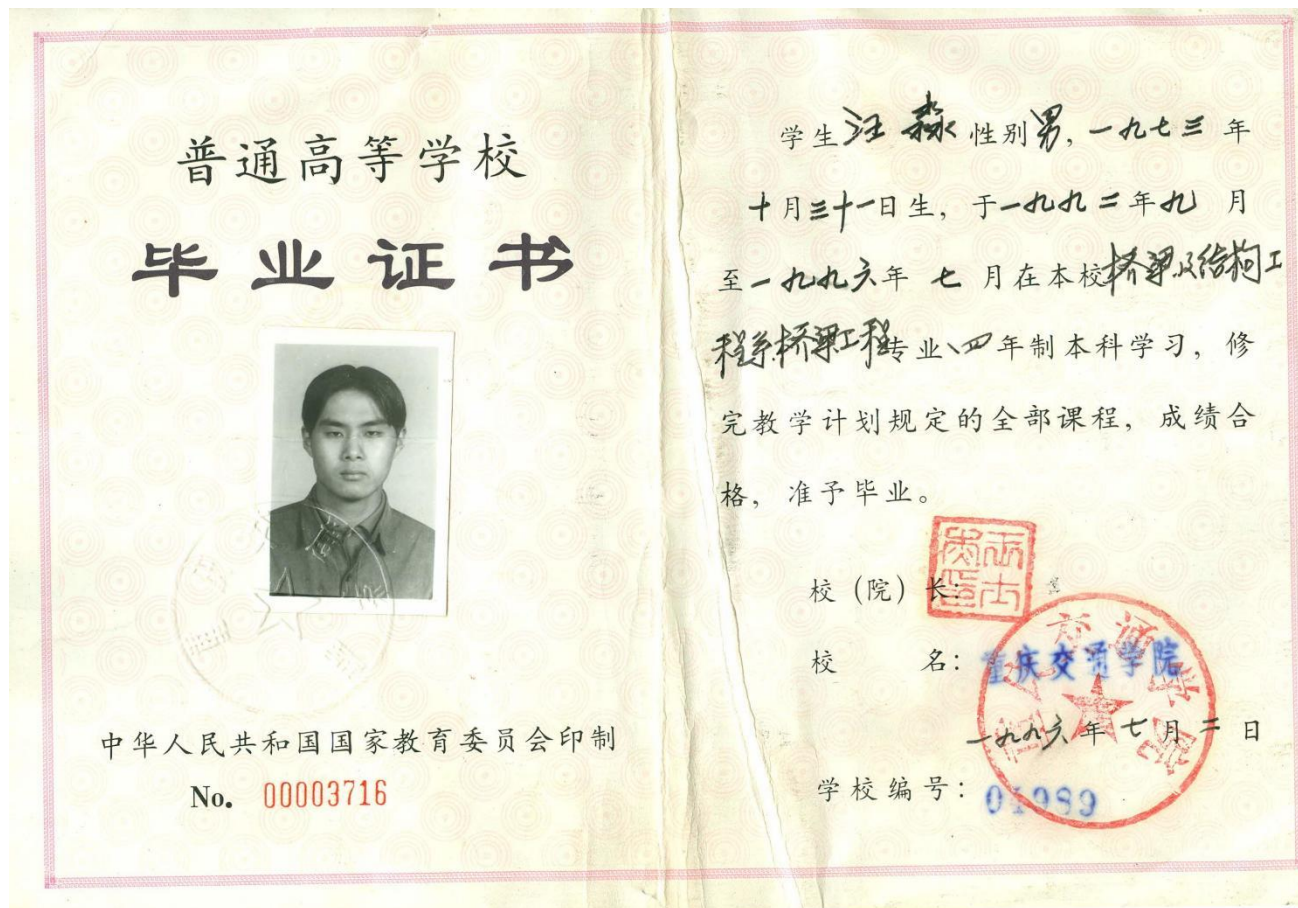 普通高等学校
毕业证书
中华人民共和国国家教育委员会印制
No. 00003716
学生汪淼性别男,一九七三年
十月三十一日生,于一九九二年九月
至一九九六年七月在本校桥梁及结构工
程系桥梁工程专业四年制本科学习,修
完教学计划规定的全部课程,成绩合
格,准予毕业。
校(院)长:
校名:重庆交通学院
一九九六年七月二日
学校编号:01989